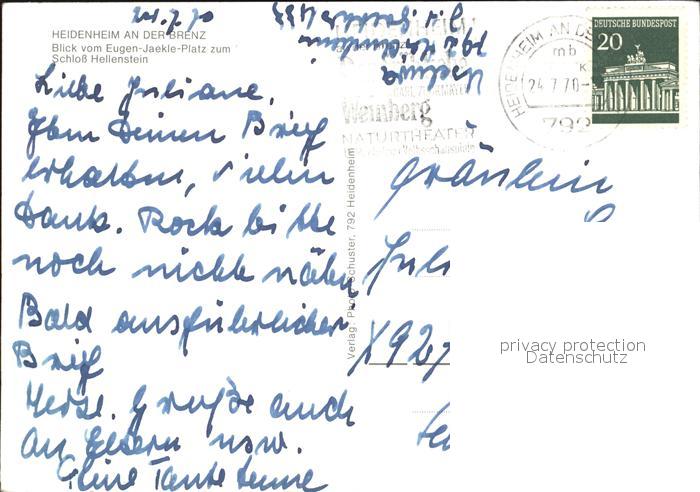 24.7.70
HEIDENHEIM AN DER BRENZ
Blick vom Eugen-Jaekle-Platz zum
Schloß Hellenstein
Liebe Juliane,
Eben Deinen Brief
erhalten, vielen
Dank. Rock bitte
noch nicht nähen
Bald ausführlicher
Brief
Herzl. Grüße auch
an Eltern usw.
Deine Tante
Verlag: Schuster, 792 Heidenheim
Weinberg
NATURTHEATER
HEIDENHEIM AN DER
mb
24.7.70
792
DEUTSCHE BUNDESPOST
20
Fräulein
Juli
X92
privacy protection
Datenschutz